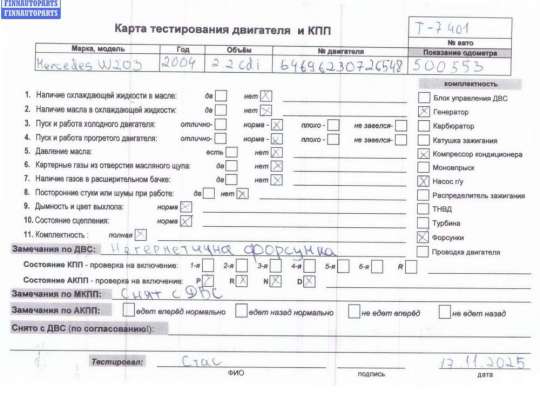 FINNAUTOPARTS
FINNAUTOPARTS
Карта тестирования двигателя и КПП
Т-7401
№ авто
Марка, модель Год Объём № двигателя Показание одометра
Mercedes W203 2004 2 2 cdi 64696230726548 500553
комплектность
1. Наличие охлаждающей жидкости в масле: да нет
2. Наличие масла в охлаждающей жидкости: да нет
3. Пуск и работа холодного двигателя: отлично- норма - плохо - не завелся-
4. Пуск и работа прогретого двигателя: отлично- норма - плохо - не завелся-
5. Давление масла: есть нет
6. Картерные газы из отверстия масляного щупа: да нет
7. Наличие газов в расширительном бачке: да нет
8. Посторонние стуки или шумы при работе: да нет
9. Дымность и цвет выхлопа: норма
10. Состояние сцепления: норма
11. Комплектность : полная
Блок управления ДВС
Генератор
Карбюратор
Катушка зажигания
Компрессор кондиционера
Моновпрыск
Насос г/у
Распределитель зажигания
ТНВД
Турбина
Форсунки
Проводка двигателя
Замечания по ДВС: Негерметична форсунка
Состояние КПП - проверка на включение: 1-я 2-я 3-я 4-я 5-я 6-я R
Состояние АКПП - проверка на включение: P R N D
Замечания по МКПП: Снят с ДВС
Замечания по АКПП: едет вперёд нормально едет назад нормально не едет вперёд не едет назад
Снято с ДВС (по согласованию!):
Тестировал: Стас 17.11.2025
ФИО подпись дата